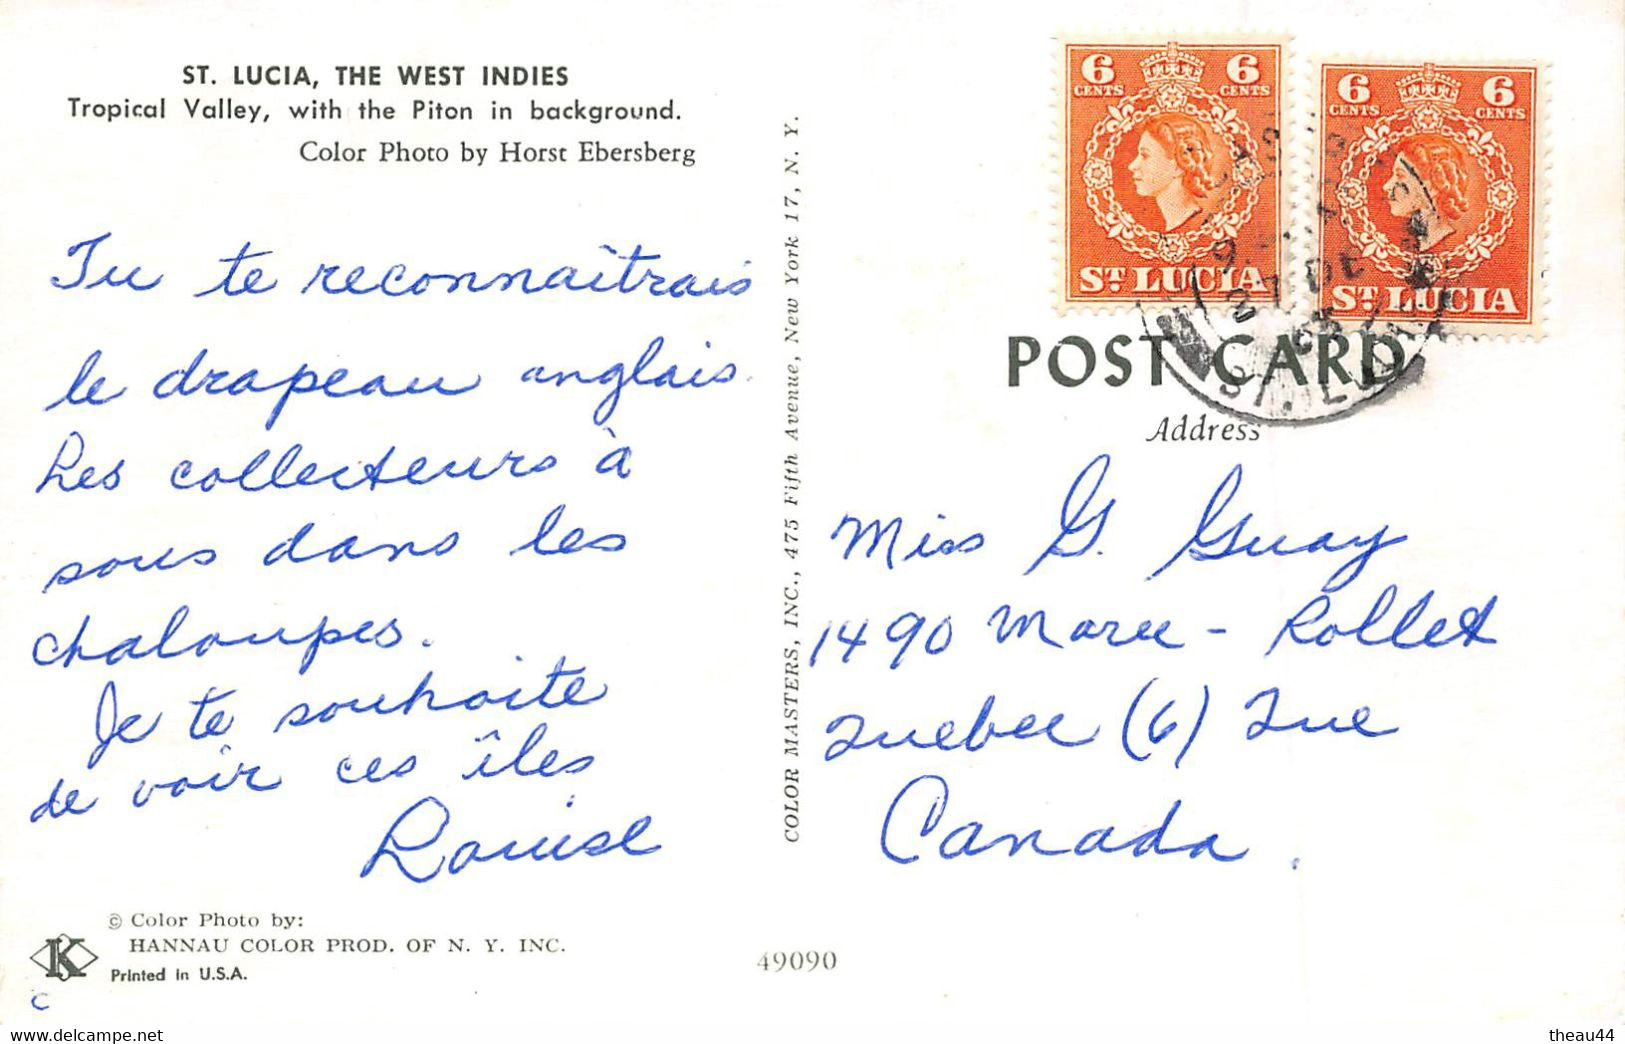 ST. LUCIA, THE WEST INDIES
Tropical Valley, with the Piton in background.
Color Photo by Horst Ebersberg
Tu te reconnaîtrais
le drapeau anglais.
Les collecteurs à
sous dans les
chaloupes.
Je te souhaite
de voir ces îles
Louise
© Color Photo by:
HANNAU COLOR PROD. OF N. Y. INC.
K
Printed in U.S.A.
C
COLOR MASTERS, INC., 475 Fifth Avenue, New York 17, N. Y.
49090
6 CENTS 6 CENTS
ST. LUCIA
6 CENTS 6 CENTS
ST. LUCIA
ST. LUCIA
POST CARD
Address
Miss G. Guay
1490 Marie-Rollet
Quebec (6) Que
Canada.
https://www.delcampe.net
theau44